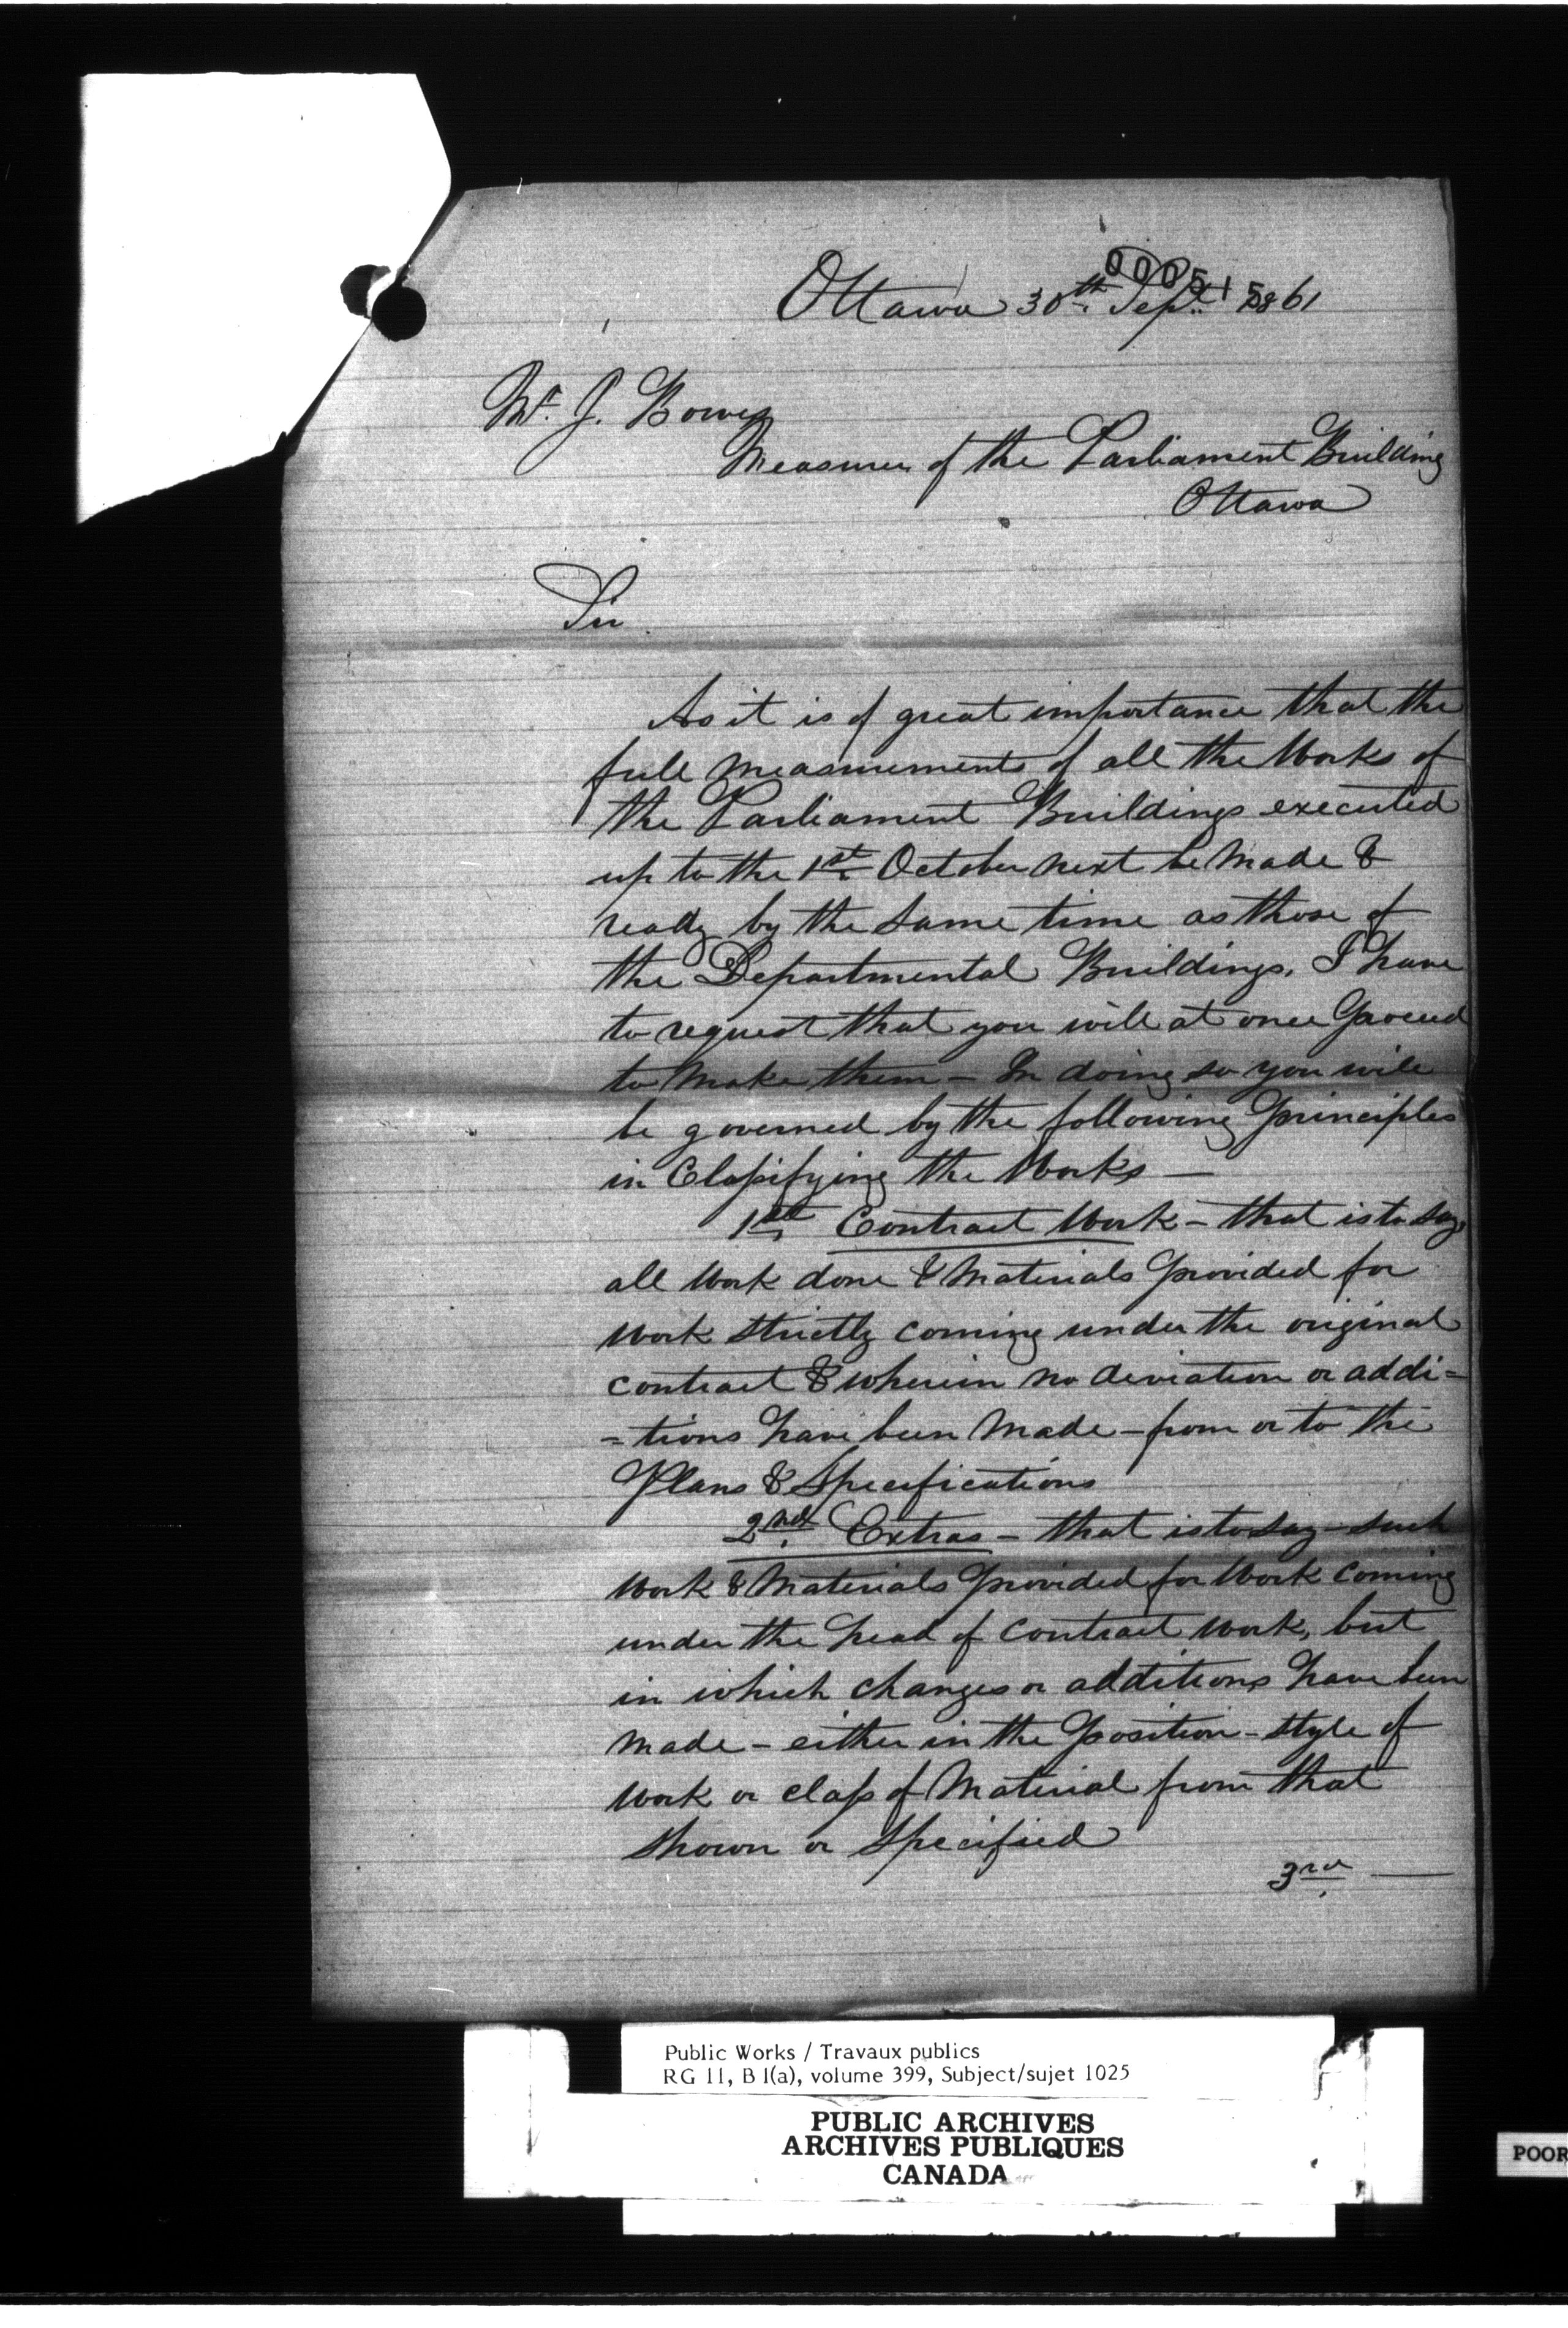 000515
Ottawa 30th. Sept. 1861
Mr. J. Bowes
Measurer of the Parliament Building
Ottawa
Sir
As it is of great importance that the
full measurements of all the Works of
the Parliament Buildings executed
up to the 1st. October next be made &
ready by the same time as those of
the Departmental Buildings, I have
to request that you will at once proceed
to make them – In doing so you will
be governed by the following principles
in Classifying the Works –
1st. Contract Work – that is to say,
all work done & materials provided for
work strictly coming under the original
contract & wherein no deviation or addi=
=tions have been made – from or to the
Plans & Specifications
2nd. Extras – that is to say – such
work & materials provided for work coming
under the head of contract work, but
in which changes or additions have been
made – either in the position – style of
work or class of material from that
shown or specified
3rd. —
Public Works / Travaux publics
RG 11, B 1(a), volume 399, Subject/sujet 1025
PUBLIC ARCHIVES
ARCHIVES PUBLIQUES
CANADA
POOR